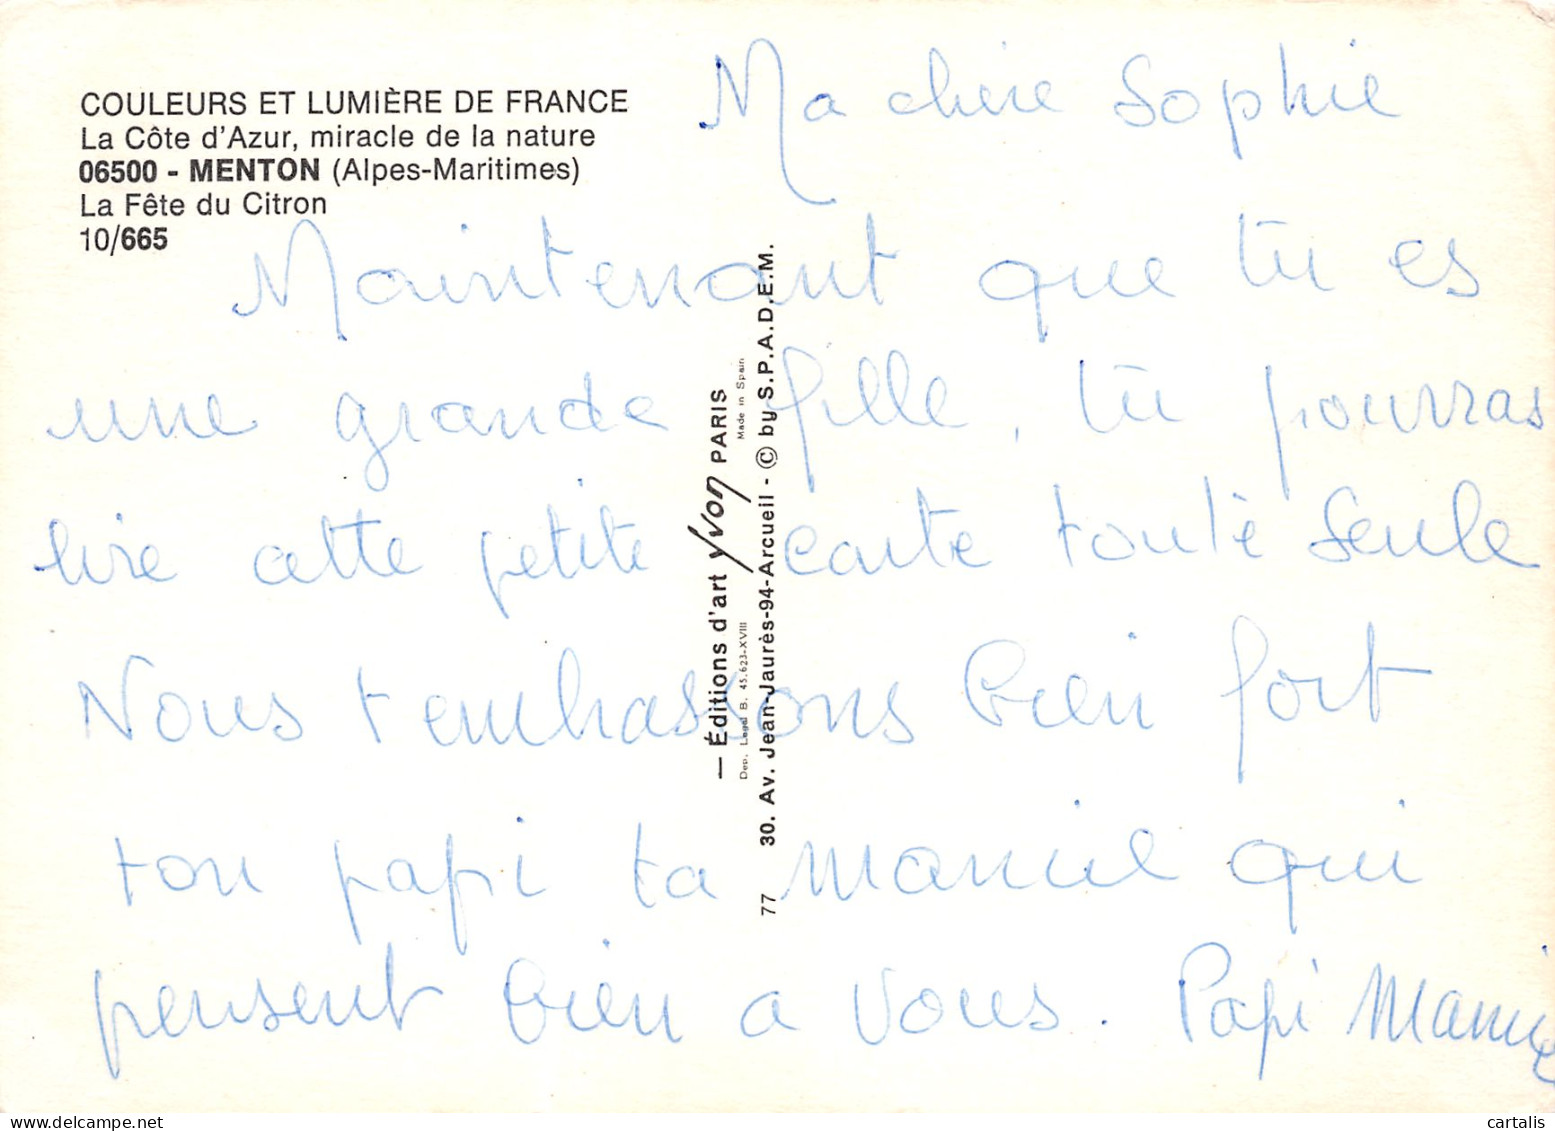 COULEURS ET LUMIÈRE DE FRANCE
La Côte d'Azur, miracle de la nature
06500 - MENTON (Alpes-Maritimes)
La Fête du Citron
10/665
Ma chère Sophie
Maintenant que tu es
une grande fille, tu pourras
lire cette petite carte toute seule
Nous t'embrassons bien fort
ton papi ta mamie qui
pensent bien a vous. Papi Mamie
— Éditions d'art Yvon PARIS
Dep. Legal B. 45.623-XVIII
Made in Spain
77 30. Av. Jean-Jaurès-94-Arcueil - © by S.P.A.D.E.M.
cartalis